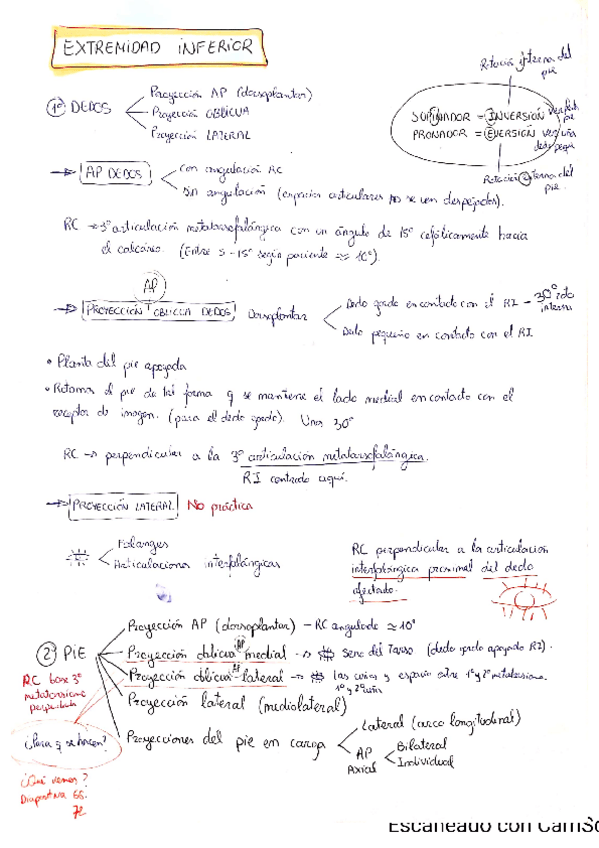 EXTREMIDAD INFERIOR
Rotación interna del
pie
1º DEDOS
Proyección AP (dorsoplantar)
Proyección OBLICUA
Proyección LATERAL
SUPINADOR = INVERSIÓN
PRONADOR = EVERSIÓN
Rotación externa del
pie.
→ AP DEDOS
Con angulación RC
Sin angulación (espacios articulares no se ven despejados).
RC → 3º articulación metatarsofalángica con un ángulo de 15º cefálicamente hacia
el calcáneo. (Entre 5-15º según paciente ≈ 10º).
AP
→ PROYECCIÓN OBLICUA DEDOS Dorsoplantar
Dedo gordo en contacto con el RI - 30º
Dedo pequeño en contacto con el RI
• Planta del pie apoyada
• Rotamos el pie de tal forma q se mantiene el lado medial en contacto con el
receptor de imagen. (para el dedo gordo). Unos 30º
RC → perpendicular a la 3º articulación metatarsofalángica.
RI centrado aquí.
→ PROYECCIÓN LATERAL No práctica
Falanges
Articulaciones interfalángicas
RC perpendicular a la articulación
interfalángica proximal del dedo
afectado.
2º PIE
Proyección AP (dorsoplantar) - RC angulado ≈ 10º
Proyección oblicua AP medial → seno del Tarso (dedo gordo apoyado RI).
Proyección oblicua AP lateral → las cuñas y espacio entre 1º y 2º metatarsiano.
1º y 2º cuña
Proyección lateral (mediolateral)
Proyecciones del pie en carga
Lateral (arco longitudinal)
AP
Axial
Bilateral
Individual
RC base 3º
metatarsiano
¿Para q se hacen?
¿Qué vemos?
Diapositiva 66.
72
Escaneado con CamSc